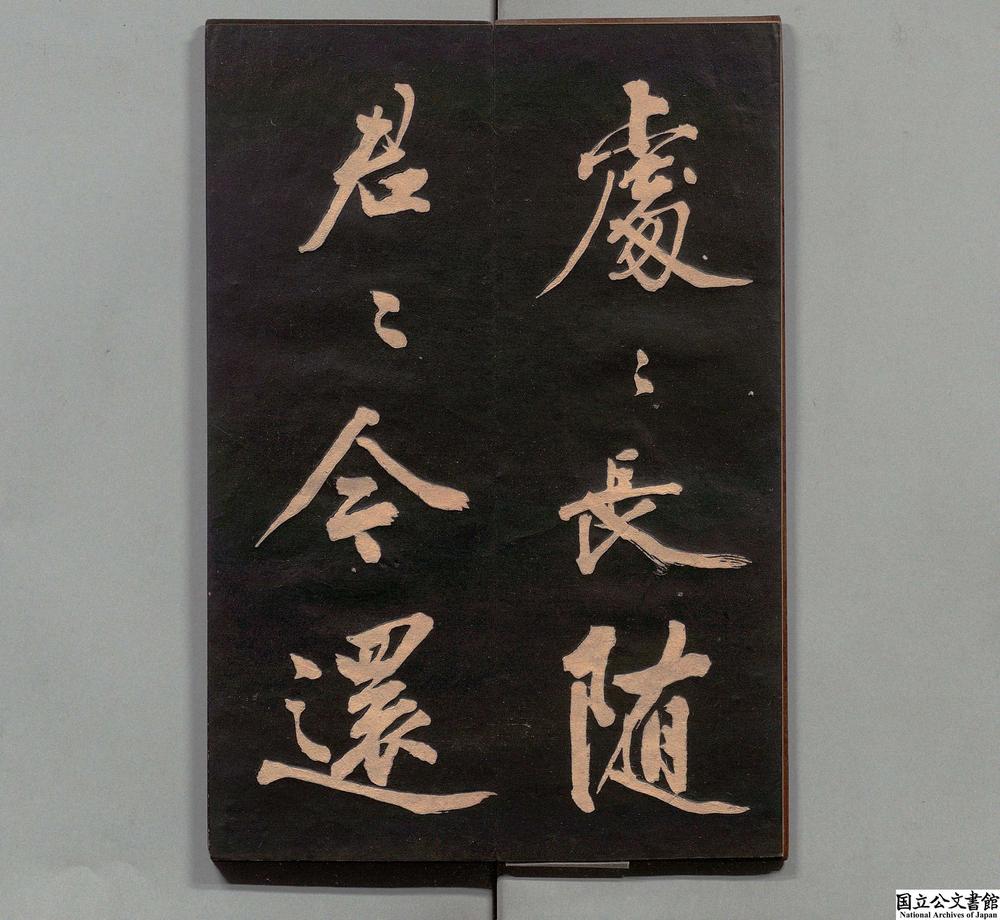 處〻長随
君〻今還
国立公文書館
National Archives of Japan